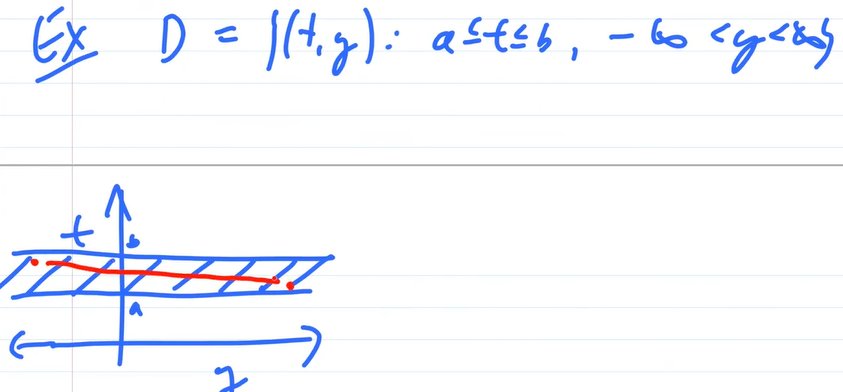 Ex D = {(t,y): a≤t≤b, -∞<y<∞}
t
b
a
y